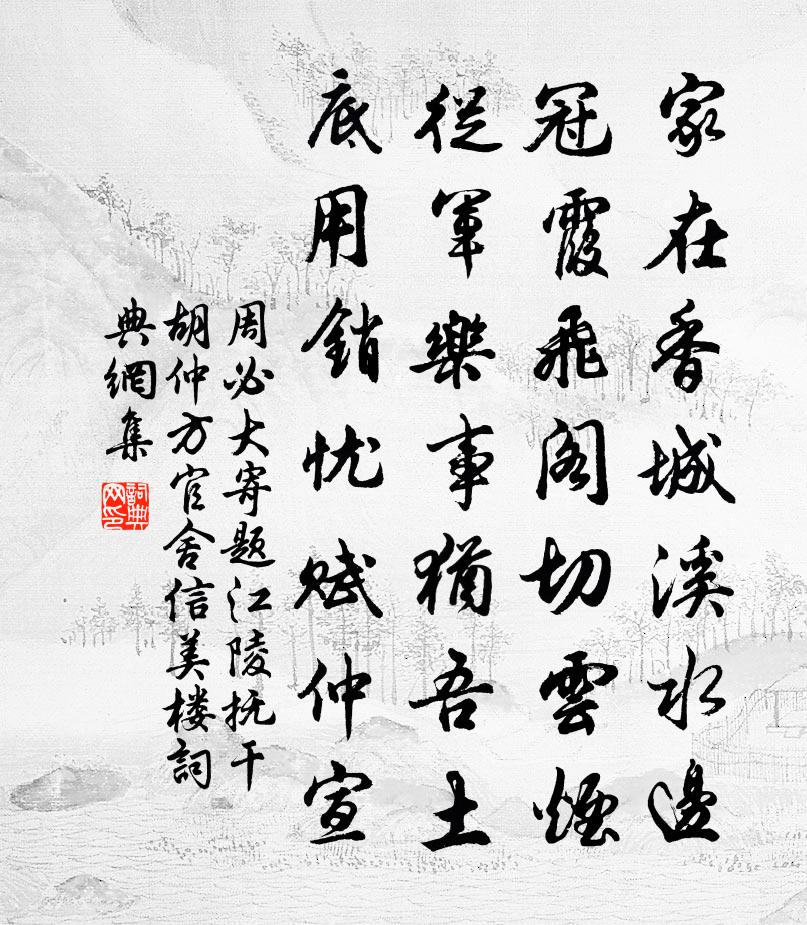 家在香城溪水邊
冠霞飛閣切雲煙
從軍樂事猶吾土
底用銷忧賦仲宣
周必大寄题江陵抚干
胡仲方官舍信美楼詞
典網集
詞典网印